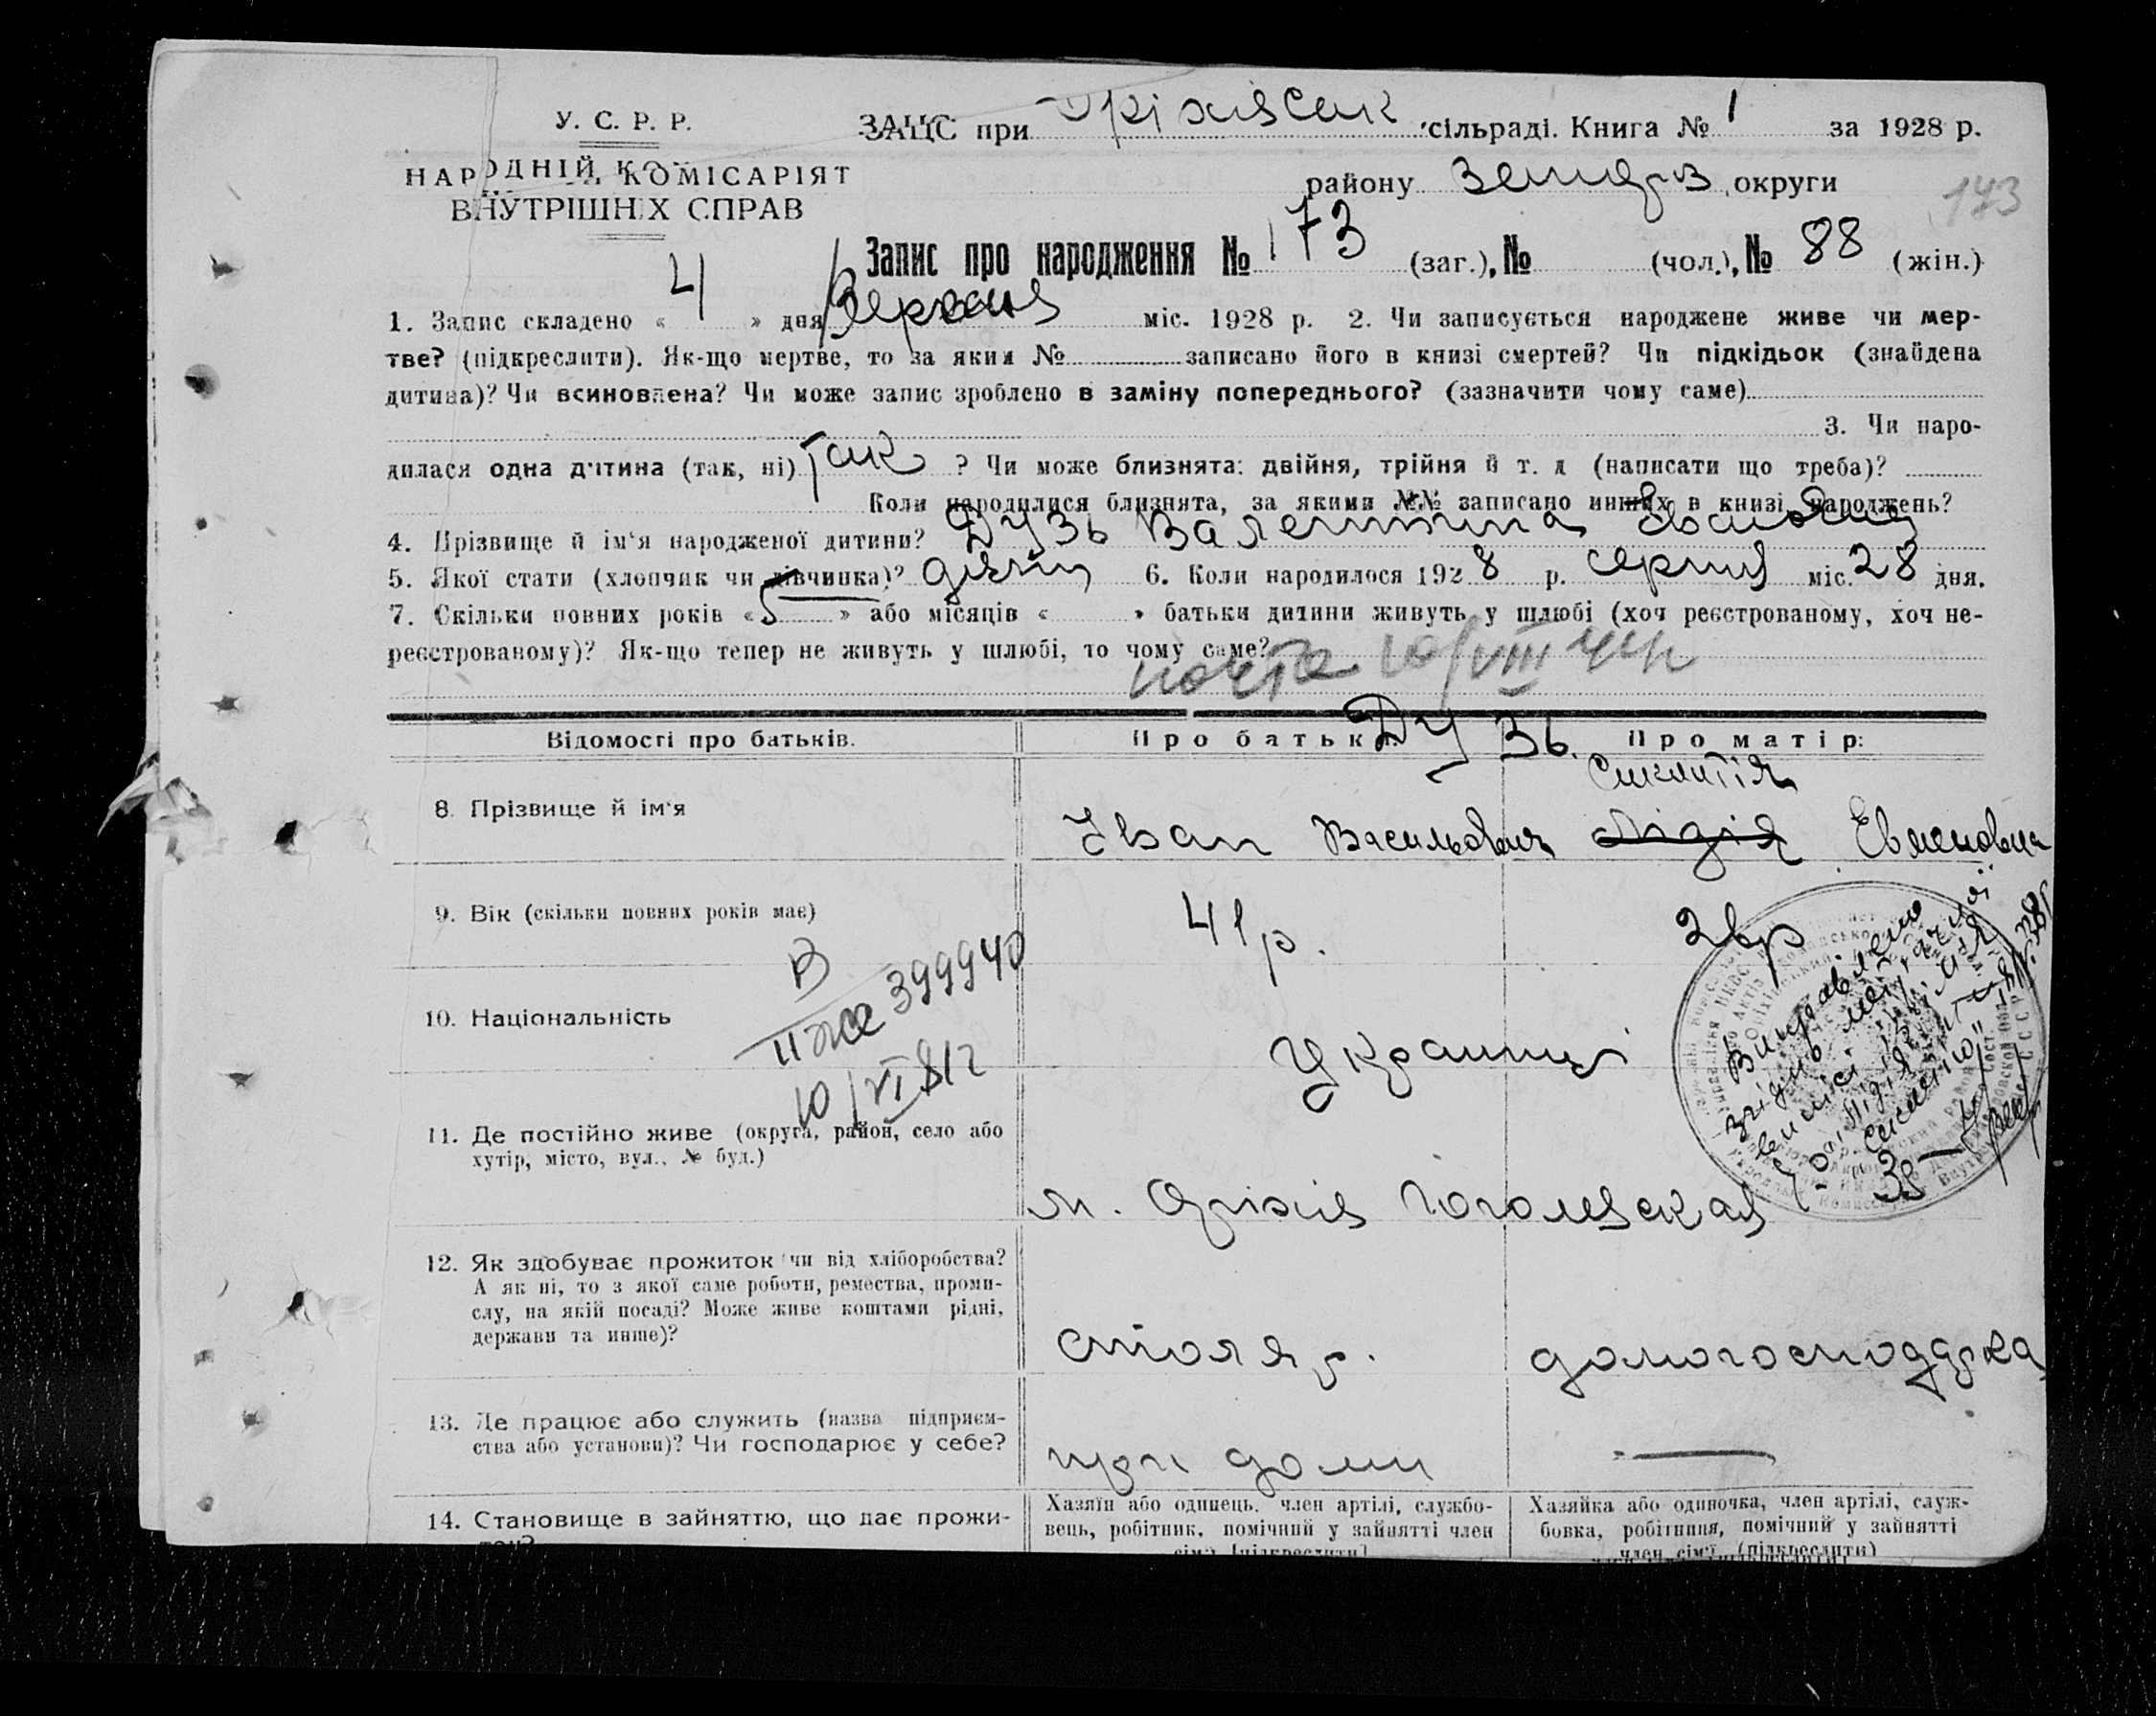 У. С. Р. Р.
НАРОДНІЙ КОМІСАРІЯТ
ВНУТРІШНІХ СПРАВ
ЗАЦС при Оріхівськ сільраді. Книга № 1 за 1928 р.
району округи
173
Запис про народження № 173 (заг.), № (чол.), № 88 (жін.)
1. Запис складено « 4 » дня Вересня міс. 1928 р. 2. Чи записується народжене живе чи мер-
тве? (підкреслити). Як-що мертве, то за яким № записано його в книзі смертей? Чи підкідьок (знайдена
дитина)? Чи всиновлена? Чи може запис зроблено в заміну попереднього? (зазначити чому саме)
3. Чи наро-
дилася одна дитина (так, ні) так ? Чи може близнята: двійня, трійня й т. д (написати що треба)?
Коли народилися близнята, за якими №№ записано инших в книзі народжень?
4. Прізвище й ім'я народженої дитини? Дузь Валентина Івановна
5. Якої стати (хлопчик чи дівчинка)? дівчин 6. Коли народилося 1928 р. серпня міс. 28 дня.
7. Скільки повних років « 5 » або місяців « » батьки дитини живуть у шлюбі (хоч реєстрованому, хоч не-
реєстрованому)? Як-що тепер не живуть у шлюбі, то чому саме?
10/VIII
Відомості про батьків. Про батька: Про матір:
Дузь.
Синклитія
8. Прізвище й ім'я Іван Васильович Лідія Евменовна
9. Вік (скільки повних років має) 41 р. 26 р
II 399940
10/VI 81 г
10. Національність Українці
Виправлено
11. Де постійно живе (округа, район, село або
хутір, місто, вул., № буд.)
м. Оріхів Гоголевская
12. Як здобуває прожиток чи від хліборобства?
А як ні, то з якої саме роботи, ремества, проми-
слу, на якій посаді? Може живе коштами рідні,
держави та инше)?
столяр. домогосподарка
13. Де працює або служить (назва підприєм-
ства або установи)? Чи господарює у себе?
при доми —
14. Становище в зайняттю, що дає прожи-
ток?
Хазяїн або одинець, член артілі, службо-
вець, робітник, помічний у зайнятті член
сім'ї (підкреслити)
Хазяйка або одиночка, член артілі, служ-
бовка, робітниця, помічний у зайнятті
член сім'ї (підкреслити)